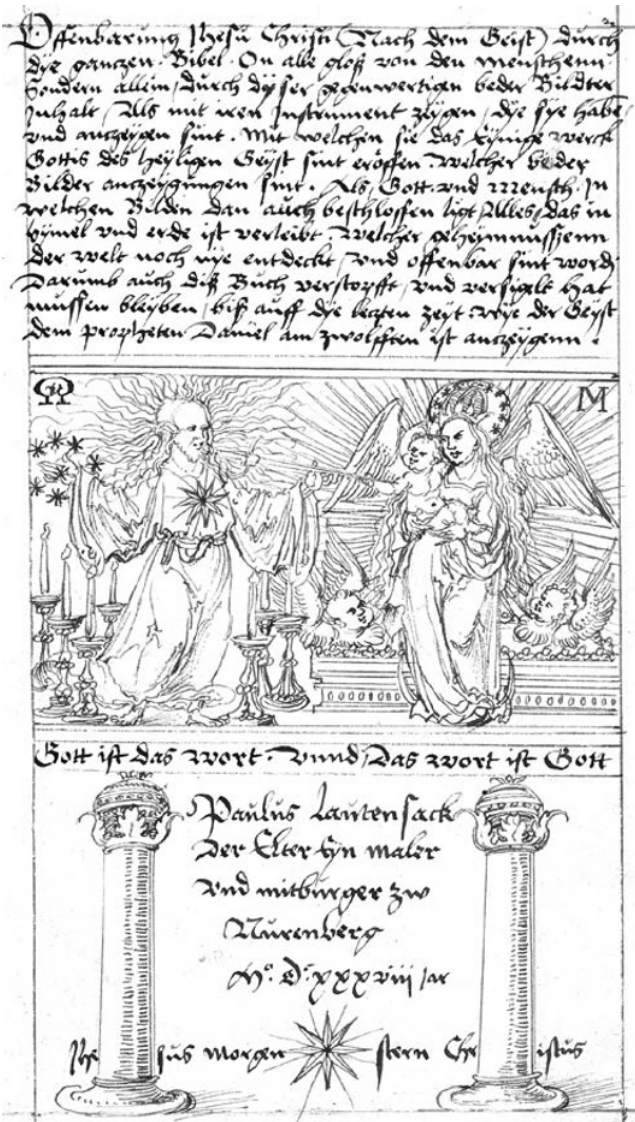 Offenbarung Jhesu Christi (Nach dem Geist) durch
dye ganczen Bibel. On alle gloß von den menschenn
Sondern allein, durch dyser gegenwertigen beder Bildter
Jnhalt, Als mit iren Jnstrument zeygen, dye sye habe,
vnd anczeygen sint. Mit welchen sie das eynige werck
Gottis des heyligen Geyst sint eröffen. welcher beder
Bilder anczeygungen sint. Als Gott vnd Mensch, Jn
welchen Bilden dan auch beschlossen ligt, Alles, das in
hymel vnd erde ist verleibt welcher geheymnussenn
der welt noch nye entdeckt, vnd offenbar sint word
Darumb auch diß Buch verstopfft, vnd versigelt hat
mussen bleyben, biß auff dye leczten zeyt, wye der Geyst
dem propheten Daniel am zwolfften ist anczeygenn.
M
Gott ist das wort. Vnnd, Das wort ist Gott
Paulus Lautensack
Der Elter Eyn maler
Vnd mitburger zw
Nurenberg
Mº. Dº. xxxviii Jar
Jhesus morgen stern Christus